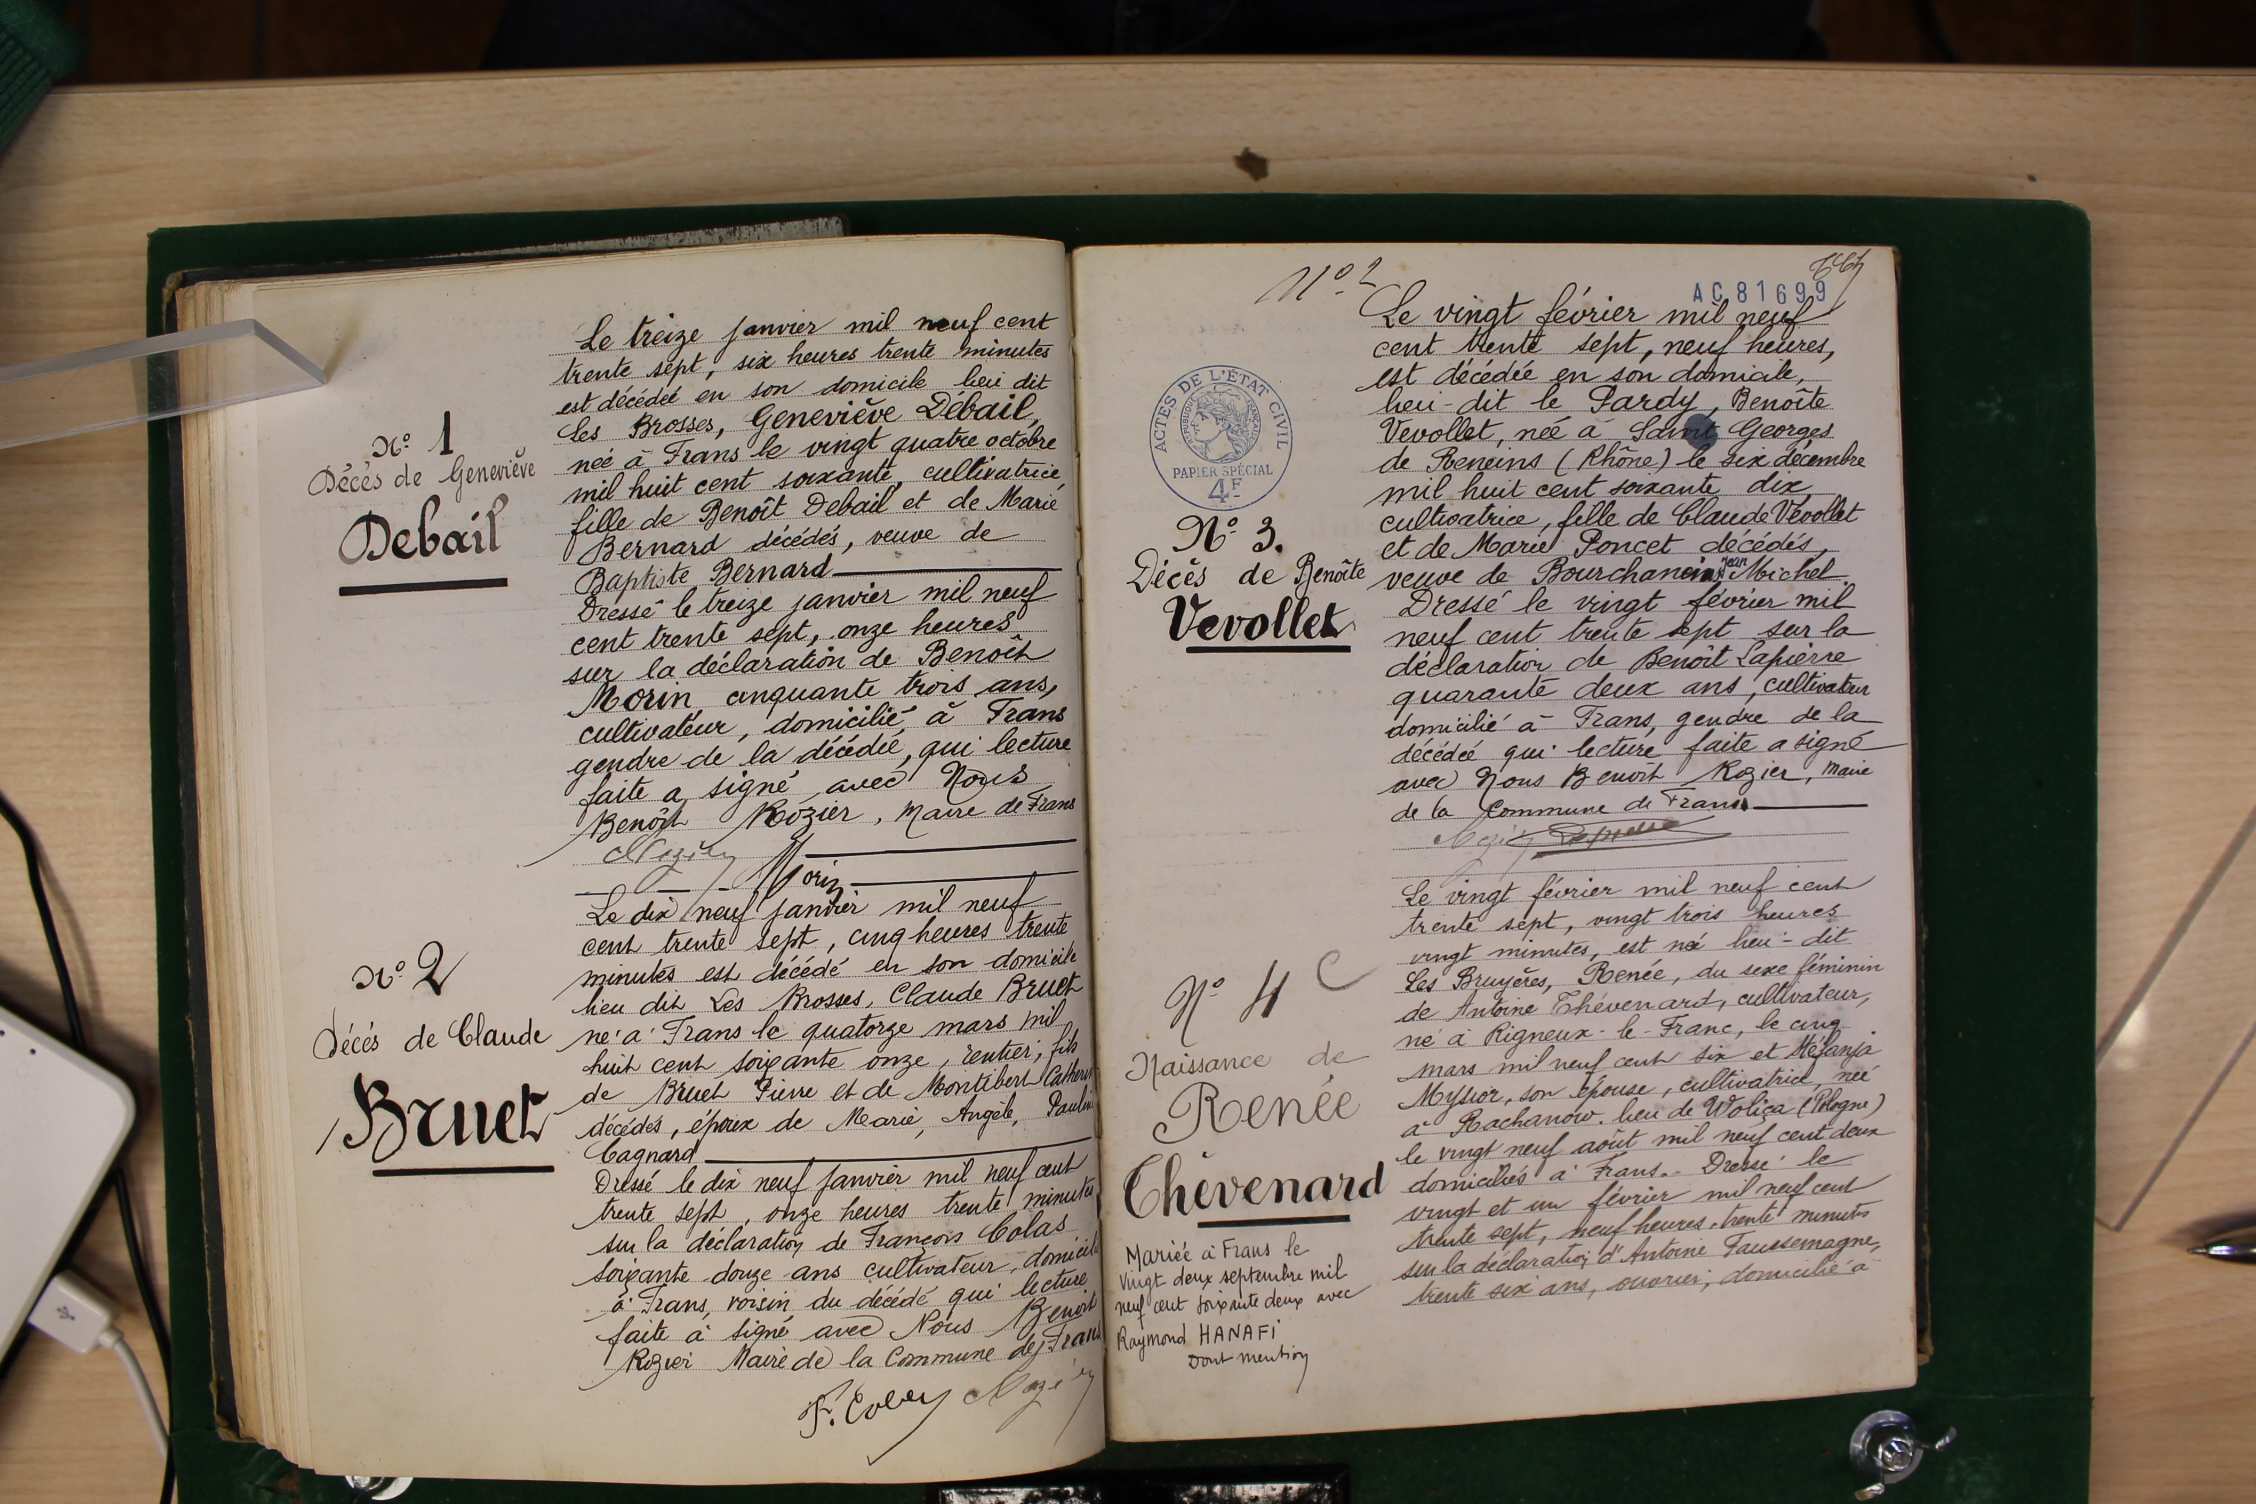 N° 1
Décès de Geneviève
Debail
Le treize janvier mil neuf cent
trente sept, six heures trente minutes
est décédée en son domicile lieu dit
Les Brosses, Geneviève Débail,
née à Frans le vingt quatre octobre
mil huit cent soixante, cultivatrice,
fille de Benoît Debail et de Marie
Bernard décédés, veuve de
Baptiste Bernard
Dressé le treize janvier mil neuf
cent trente sept, onze heures
sur la déclaration de Benoît
Morin, cinquante trois ans,
cultivateur, domicilié à Frans
gendre de la décédée, qui lecture
faite a signé avec Nous
Benoît Rozier, Maire de Frans
Rozier Morin
N° 2
Décés de Claude
Bruet
Le dix neuf janvier mil neuf
cent trente sept, cinq heures trente
minutes est décédé en son domicile
lieu dit Les Brosses, Claude Bruet
né à Frans le quatorze mars mil
huit cent soixante onze, rentier, fils
de Bruet Pierre et de Montibert Catherine
décédés, époux de Marie, Angèle, Pauline
Cagnard
Dressé le dix neuf janvier mil neuf cent
trente sept, onze heures trente minutes
sur la déclaration de François Colas
soixante douze ans cultivateur, domicilié
à Frans, voisin du décédé qui lecture
faite à signé avec Nous Benoît
Rozier Maire de la Commune de Frans
F. Colas Rozier
N° 2
AC81699
ACTES DE L'ÉTAT CIVIL
RÉPUBLIQUE FRANÇAISE
PAPIER SPÉCIAL
4F
N° 3.
Décès de Benoîte
Vevollet
Le vingt février mil neuf
cent trente sept, neuf heures,
est décédée en son domicile,
lieu-dit le Pardy, Benoîte
Vevollet, née à Saint Georges
de Reneins (Rhône) le six décembre
mil huit cent soixante dix,
cultivatrice, fille de Claude Vevollet
et de Marie Poncet décédés,
veuve de Bourchanin Jean Michel.
Dressé le vingt février mil
neuf cent trente sept sur la
déclaration de Benoît Lapierre
quarante deux ans, cultivateur
domicilié à Frans, gendre de la
décédée qui lecture faite a signé
avec Nous Benoît Rozier, Maire
de la Commune de Frans.
Rozier Lapierre
N° 4 C
Naissance de
Renée
Thévenard
Le vingt février mil neuf cent
trente sept, vingt trois heures
vingt minutes, est née lieu-dit
Les Bruyères, Renée, du sexe féminin
de Antoine Thévenard, cultivateur,
né à Rigneux-le-Franc, le cinq
mars mil neuf cent six et Stéfanja
Mysior, son épouse, cultivatrice, née
à Rachanow. lieu de Wolica (Pologne)
le vingt neuf août mil neuf cent deux
domiciliés à Frans. Dressé le
vingt et un février mil neuf cent
trente sept, neuf heures trente minutes
sur la déclaration d'Antoine Faussemagne,
trente six ans, ouvrier, domicilié à
Mariée à Frans le
vingt deux septembre mil
neuf cent soixante deux avec
Raymond HANAFI
Dont mention